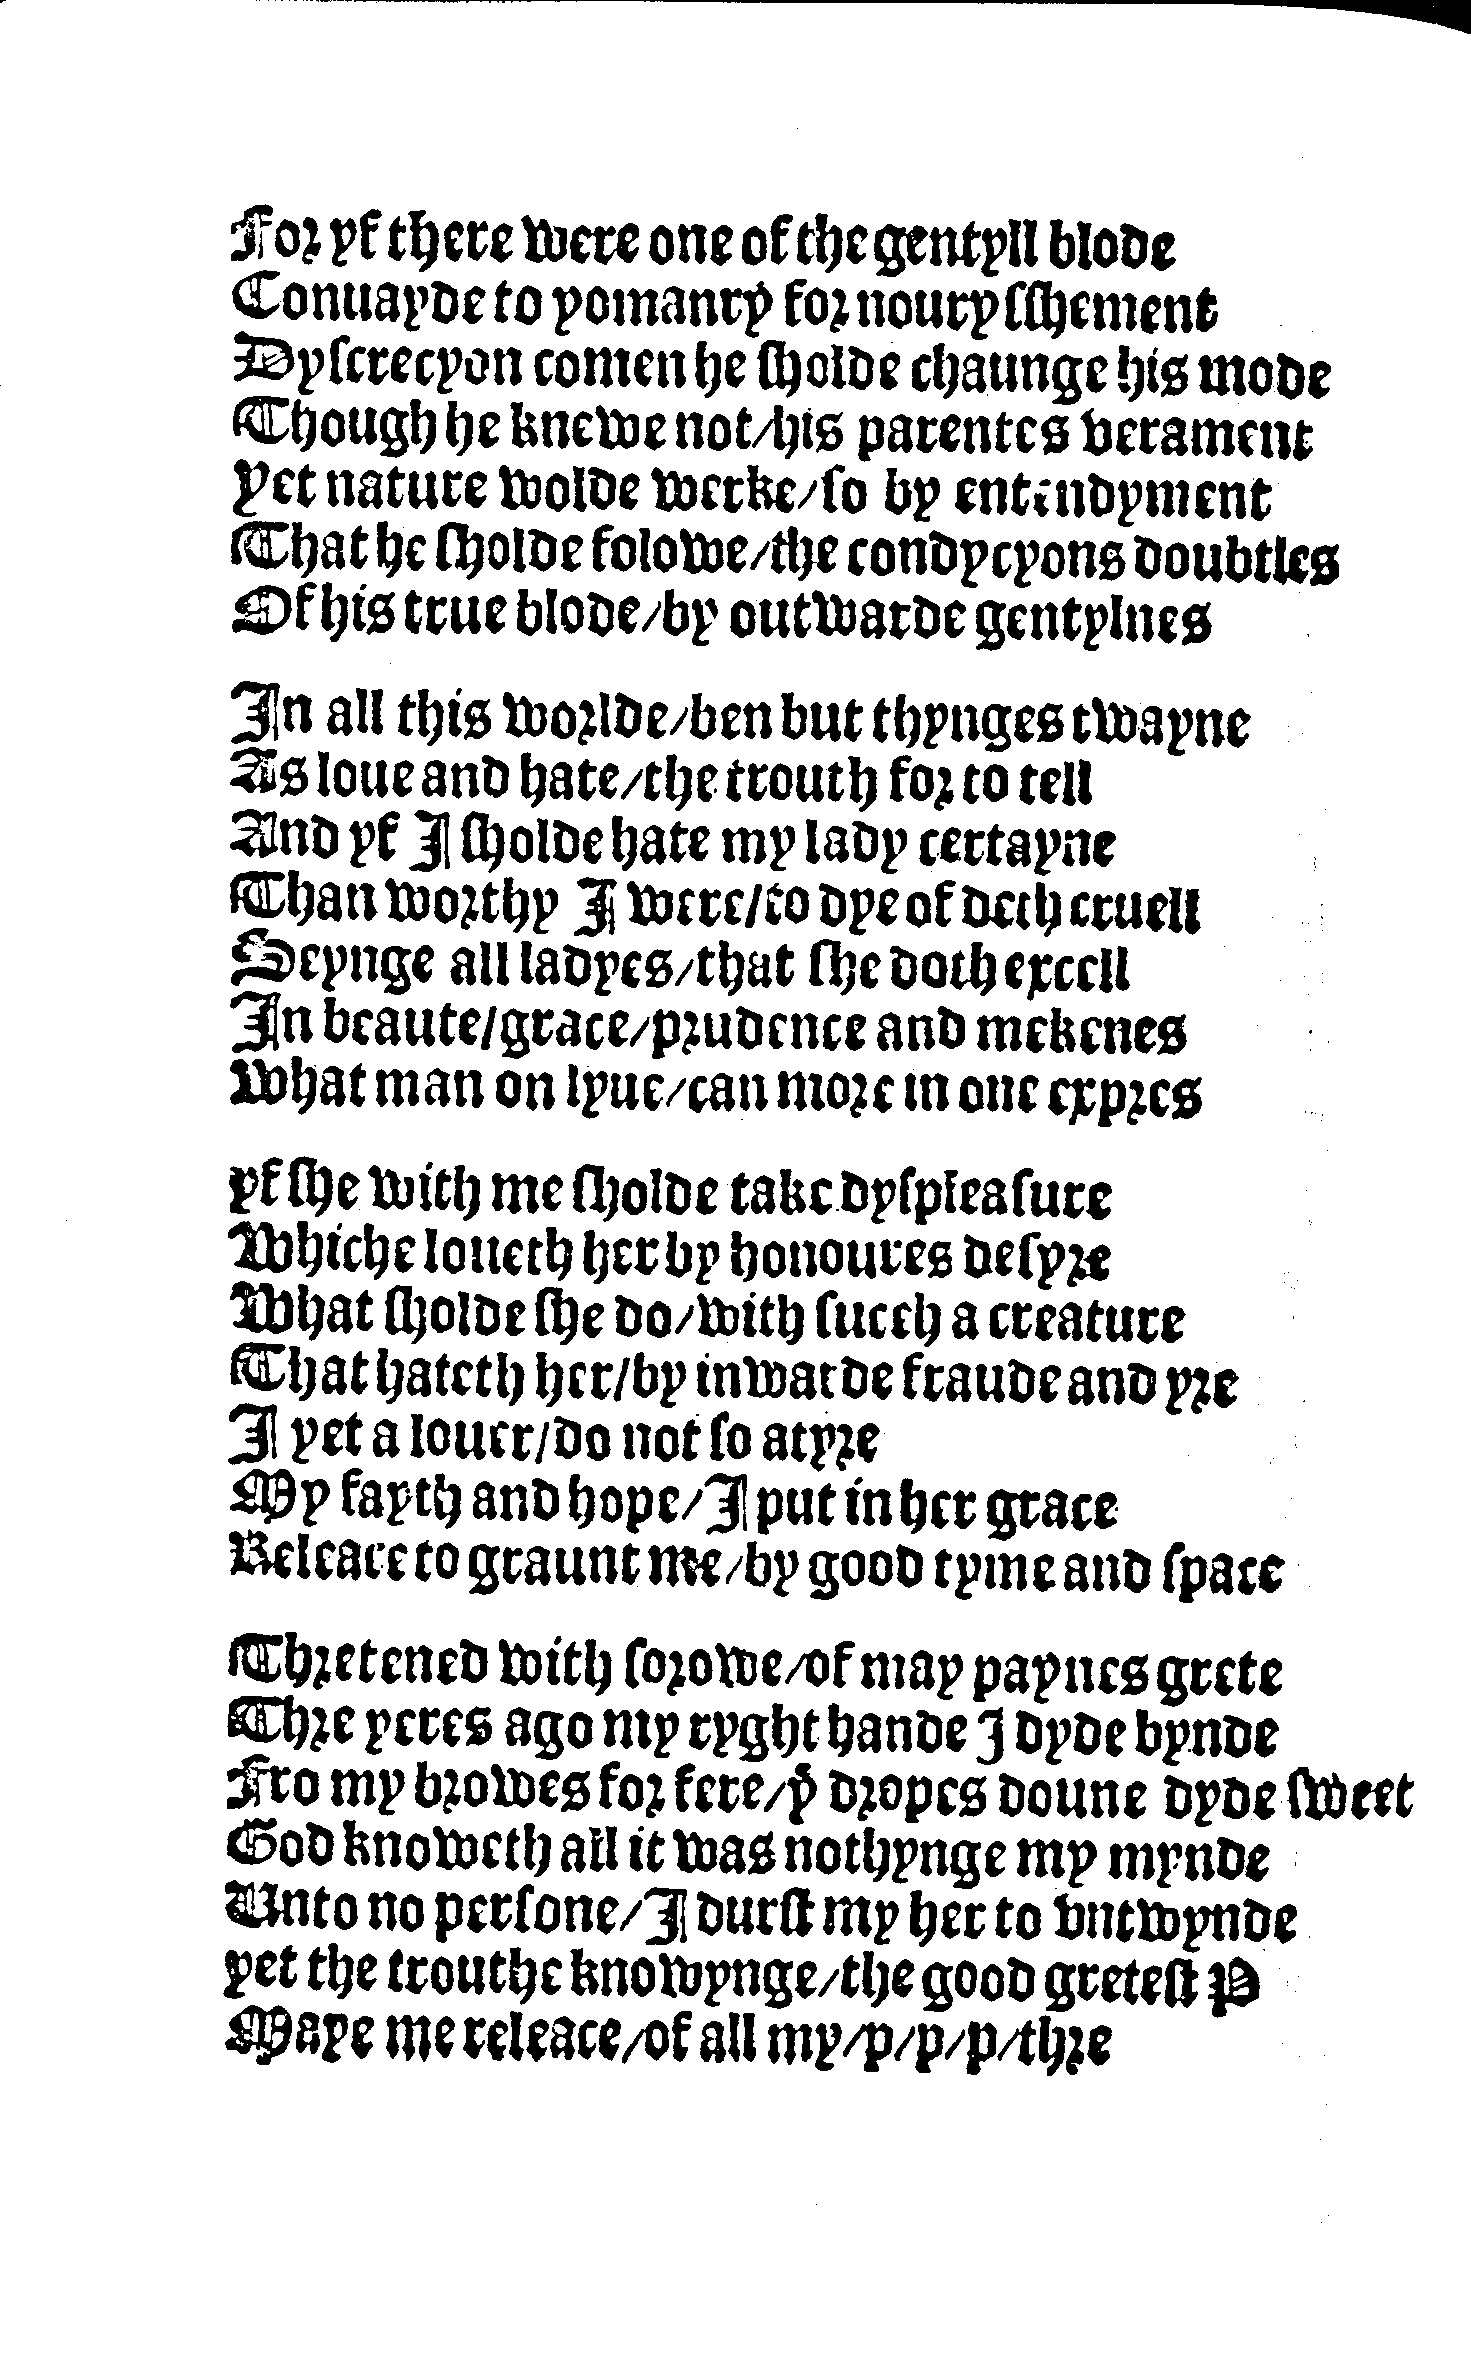 For yf there were one of the gentyll blode
Conuayde to yomanry for nouryſſhement
Dyſcrecyon comen he ſholde chaunge his mode
Though he knewe not/his parentes verament
Yet nature wolde werke/ſo by entendyment
That he ſholde folowe/the condycyons doubtles
Of his true blode/by outwarde gentylnes

In all this worlde/ben but thynges twayne
As loue and hate/the trouth for to tell
And yf I ſholde hate my lady certayne
Than worthy I were/to dye of deth cruell
Seynge all ladyes/that ſhe doth excell
In beaute/grace/prudence and mekenes
What man on lyue/can more in one expres

yf ſhe with me ſholde take dyſpleaſure
Whiche loueth her by honoures deſyre
What ſholde ſhe do/with ſucch a creature
That hateth her/by inwarde fraude and yre
I yet a louer/do not ſo atyre
My fayth and hope/I put in her grace
Releace to graunt me/by good tyme and ſpace

Thretened with ſorowe/of may paynes grete
Thre yeres ago my ryght hande I dyde bynde
Fro my browes for fere/yͤ dropes doune dyde ſweet
God knoweth all it was nothynge my mynde
Unto no perſone/I durſt my her to vntwynde
yet the trouthe knowynge/the good greteſt P
Maye me releace/of all my/p/p/p/thre